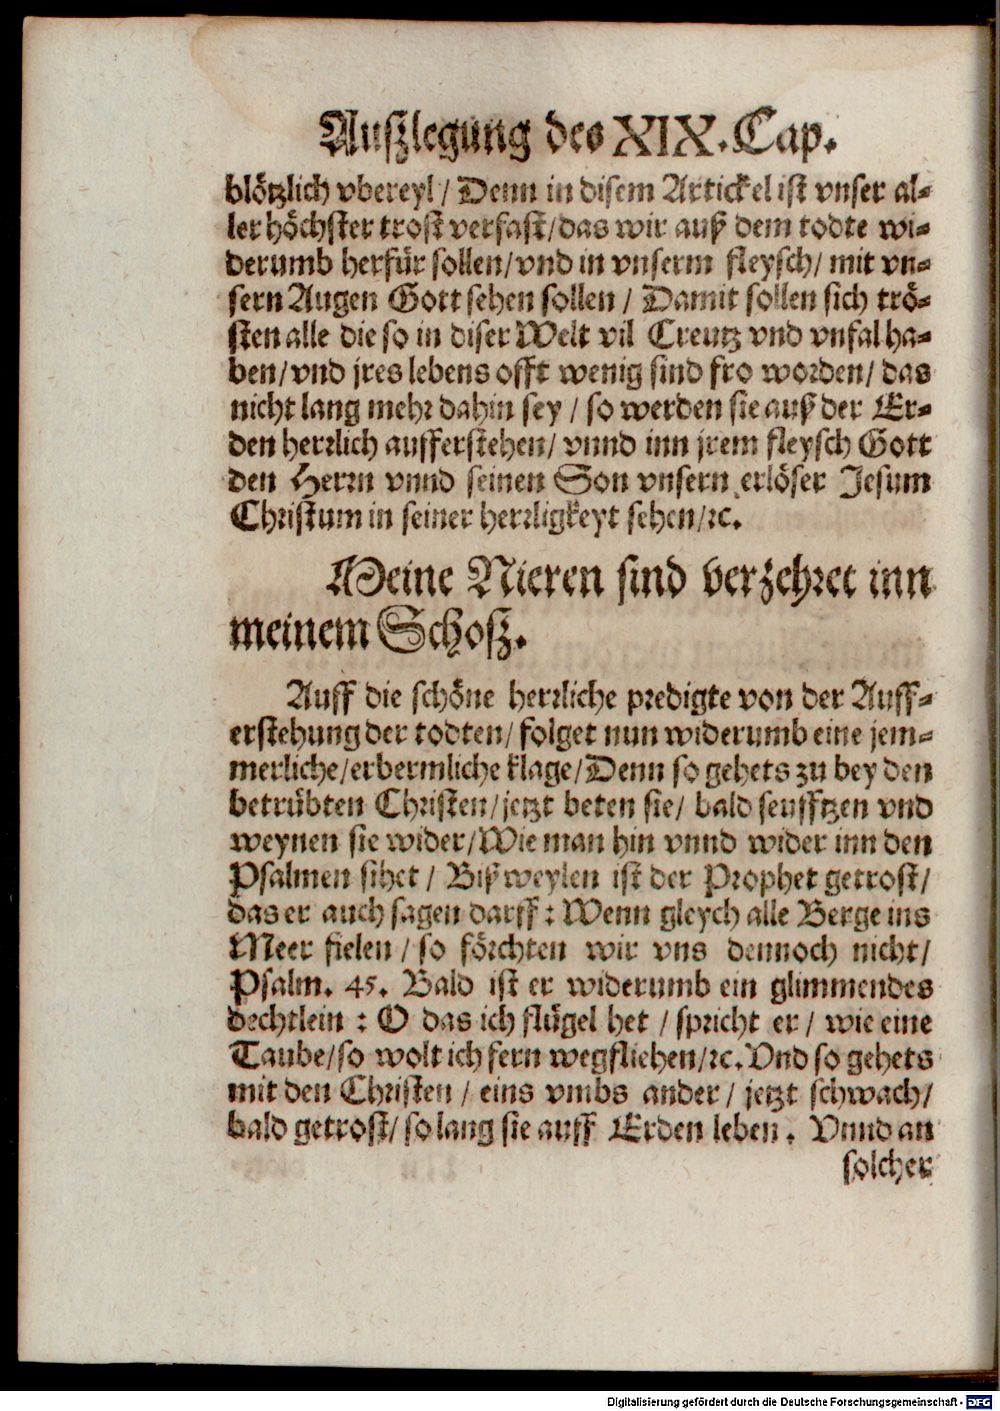 Auſzlegung des XIX. Cap.
blötzlich vbereyl / Denn in diſem Artickel iſt vnſer al-
ler höchſter troſt verfaſt / das wir auß dem todte wi-
derumb herfür ſollen / vnd in vnſerm fleyſch / mit vn-
ſern Augen Gott ſehen ſollen / Damit ſollen ſich trö-
ſten alle die ſo in diſer Welt vil Creutz vnd vnfal ha-
ben / vnd jres lebens offt wenig ſind fro worden / das
nicht lang mehr dahin ſey / ſo werden ſie auß der Er-
den herrlich aufferſtehen / vnnd inn jrem fleyſch Gott
den Herrn vnnd ſeinen Son vnſern erlöſer Jeſum
Chriſtum in ſeiner herrligkeyt ſehen / ꝛc.
Meine Nieren ſind verzehret inn
meinem Schoſz.
Auff die ſchöne herrliche predigte von der Auff-
erſtehung der todten / folget nun widerumb eine jem-
merliche / erbermliche klage / Denn ſo gehets zu bey den
betrübten Chriſten / jetzt beten ſie / bald ſeufftzen vnd
weynen ſie wider / Wie man hin vnnd wider inn den
Pſalmen ſihet / Bißweylen iſt der Prophet getroſt /
das er auch ſagen darff : Wenn gleych alle Berge ins
Meer fielen / ſo förchten wir vns dennoch nicht /
Pſalm. 45. Bald iſt er widerumb ein glimmendes
dechtlein : O das ich flügel het / ſpricht er / wie eine
Taube / ſo wolt ich fern wegfliehen / ꝛc. Vnd ſo gehets
mit den Chriſten / eins vmbs ander / jetzt ſchwach /
bald getroſt / ſo lang ſie auff Erden leben. Vnnd an
ſolcher
Digitalisierung gefördert durch die Deutsche Forschungsgemeinschaft - DFG